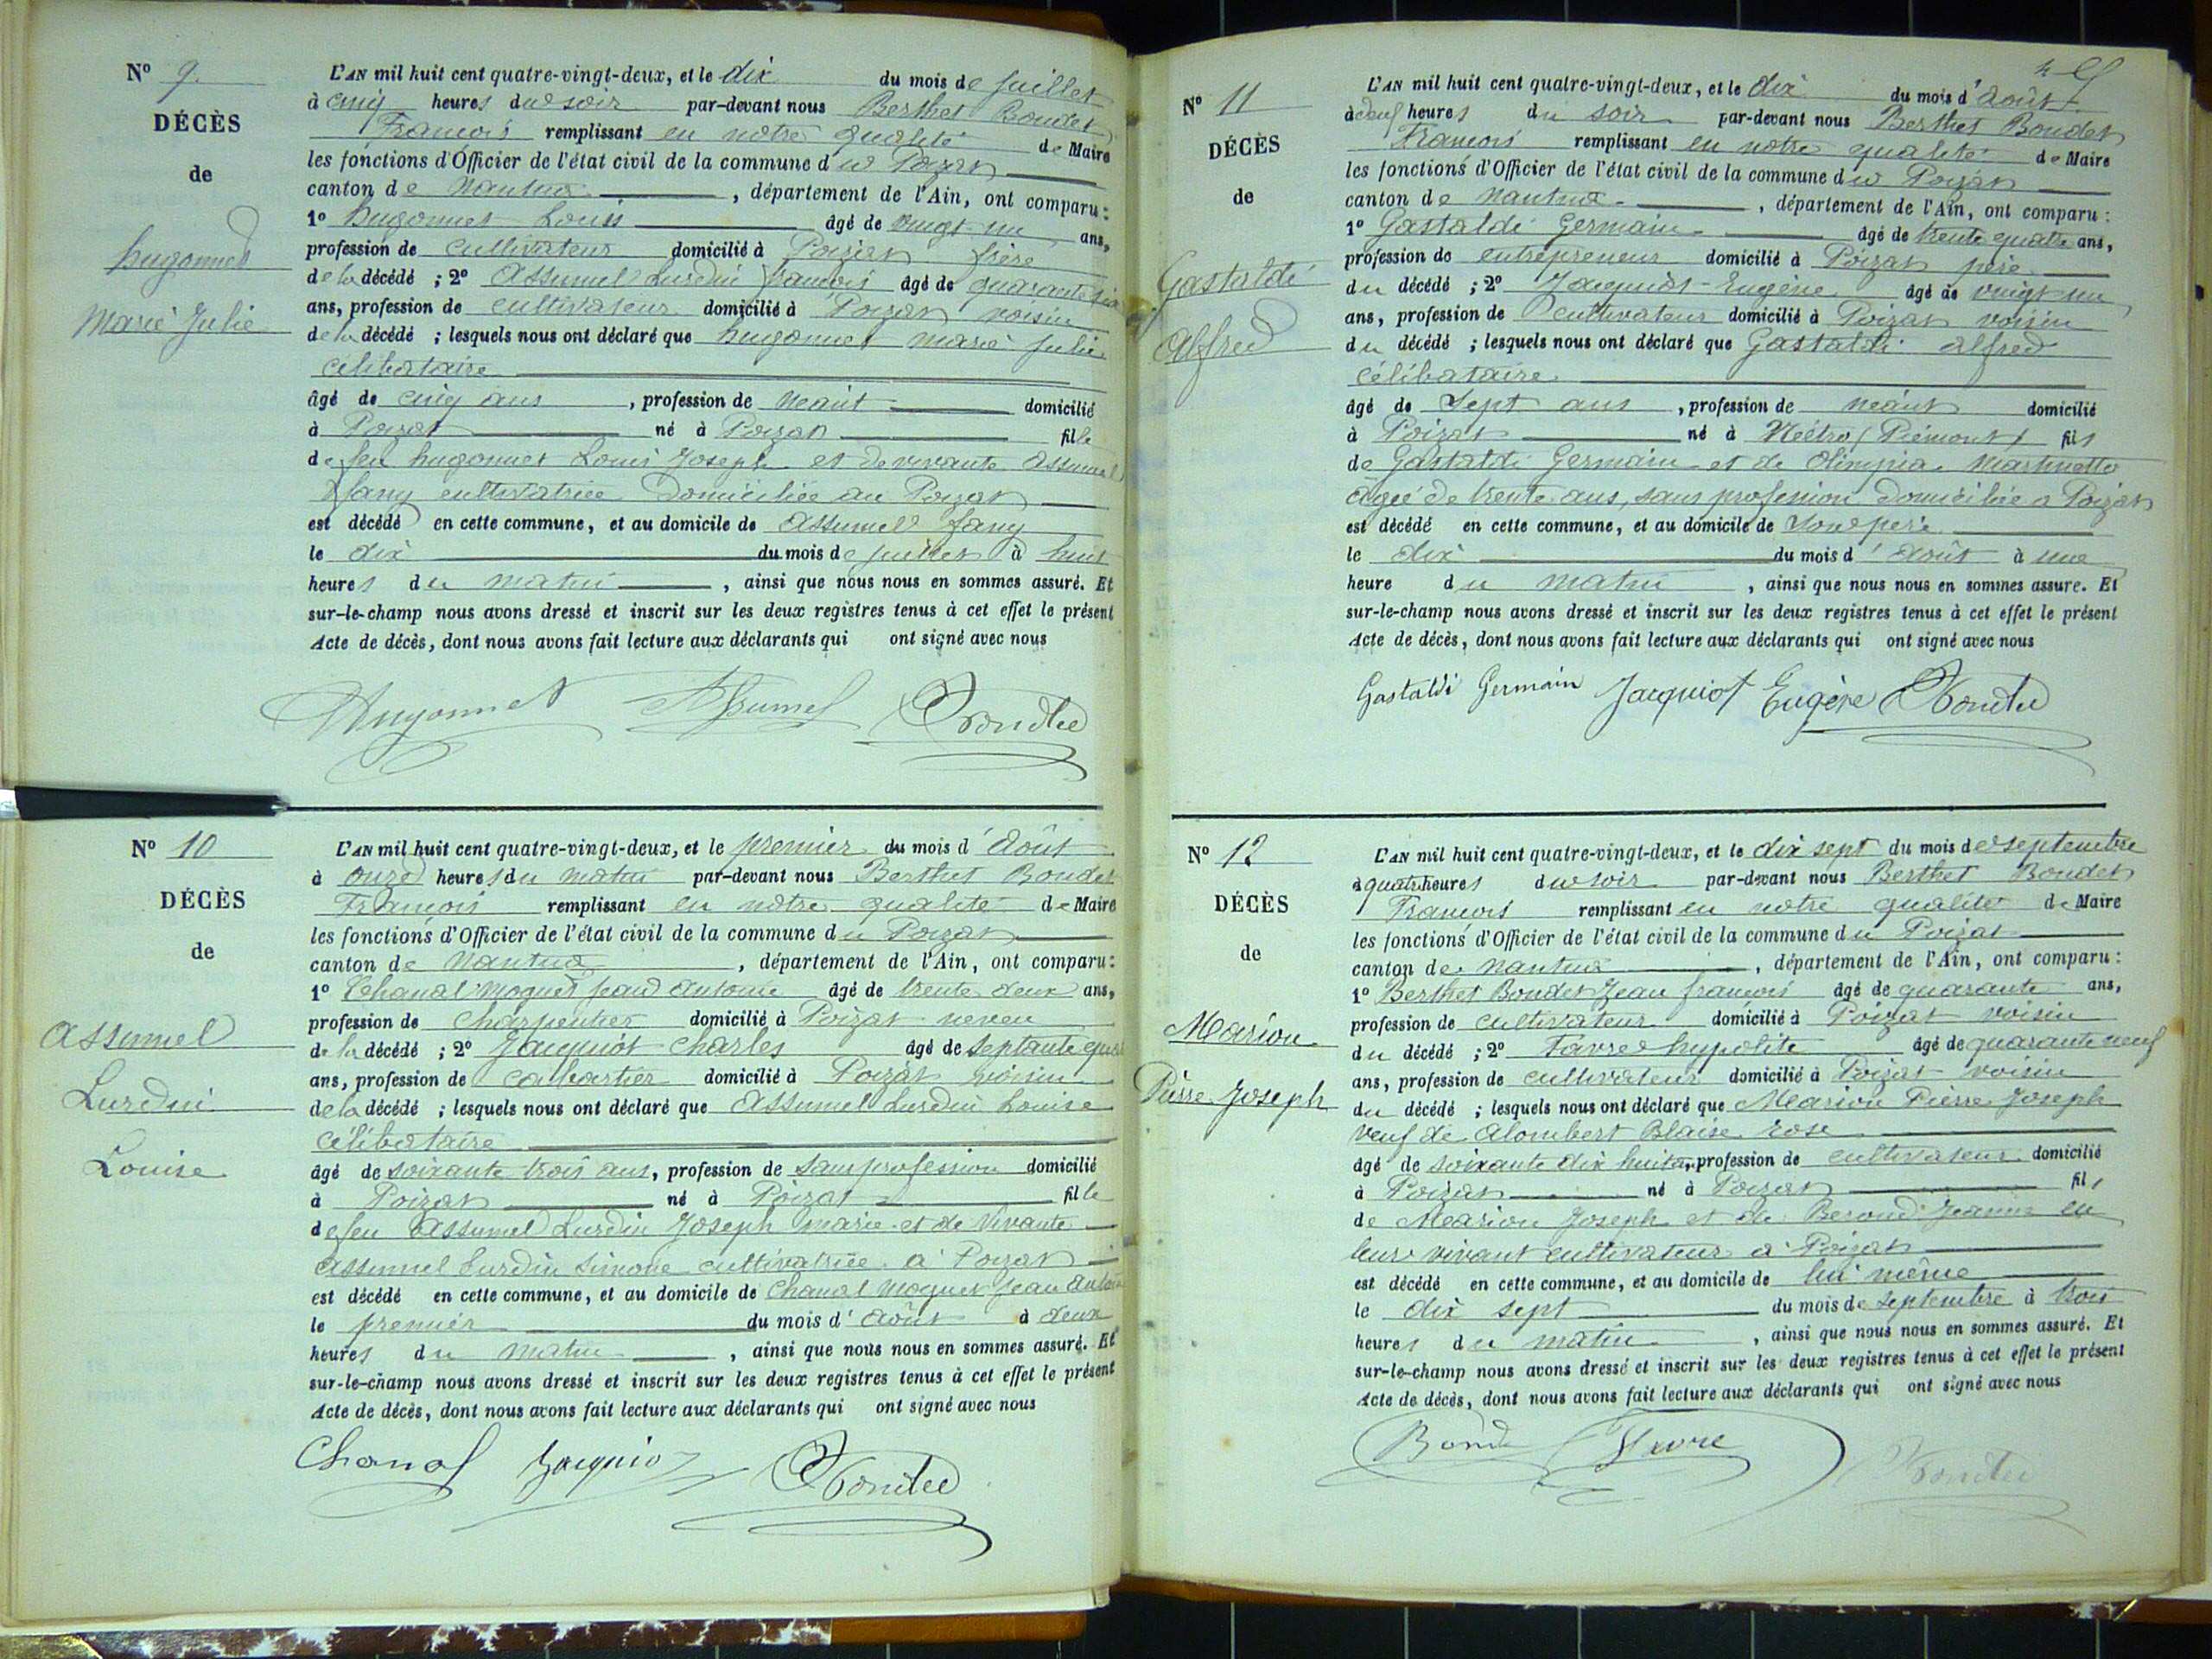 N° 9.
DÉCÈS
de
hugonnet
Marie Julie
L'AN mil huit cent quatre-vingt-deux, et le dix du mois de juillet
à cinq heures du soir par-devant nous Berthet Boudet
François remplissant en notre qualité de Maire
les fonctions d'Officier de l'état civil de la commune du Poizat
canton de Nantua, département de l'Ain, ont comparu :
1° hugonnet Louis âgé de vingt un ans,
profession de cultivateur domicilié à Poizat frère
de la décédé ; 2° Assumel Lurdin françois âgé de quarante six
ans, profession de cultivateur domicilié à Poizat voisin
de la décédé ; lesquels nous ont déclaré que hugonnet marie julie
célibataire
âgé de cinq ans, profession de néant domicilié
à Poizat né à Poizat fille
de feu hugonnet Louis Joseph et de vivante Assumel
fany cultivatrice domiciliée au Poizat
est décédé en cette commune, et au domicile de Assumel fany
le dix du mois de juillet à huit
heures du matin, ainsi que nous nous en sommes assuré. Et
sur-le-champ nous avons dressé et inscrit sur les deux registres tenus à cet effet le présent
Acte de décès, dont nous avons fait lecture aux déclarants qui ont signé avec nous
Hugonnet Assumel Boudet
N° 10
DÉCÈS
de
Assumel
Lurdin
Louise
L'AN mil huit cent quatre-vingt-deux, et le premier du mois d'août
à onze heures du matin par-devant nous Berthet Boudet
François remplissant en notre qualité de Maire
les fonctions d'Officier de l'état civil de la commune du Poizat
canton de Nantua, département de l'Ain, ont comparu :
1° Chanal Moquet jean antoine âgé de trente deux ans,
profession de charpentier domicilié à Poizat neveu
de la décédé ; 2° Jacquiot Charles âgé de septante
ans, profession de cabartier domicilié à Poizat voisin
de la décédé ; lesquels nous ont déclaré que Assumel Lurdin Louise
célibataire
âgé de soixante trois ans, profession de sans profession domicilié
à Poizat né à Poizat fille
de feu Assumel Lurdin Joseph marie et de vivante
Assumel Lurdin Simone cultivatrice a Poizat
est décédé en cette commune, et au domicile de Chanal moquet jean antoine
le premier du mois d'août à deux
heures du matin, ainsi que nous nous en sommes assuré. Et
sur-le-champ nous avons dressé et inscrit sur les deux registres tenus à cet effet le présent
Acte de décès, dont nous avons fait lecture aux déclarants qui ont signé avec nous
Chanal Jacquiot Boudet
N° 11
DÉCÈS
de
Gastaldi
Alfred
L'AN mil huit cent quatre-vingt-deux, et le dix du mois d'août
à neuf heures du soir par-devant nous Berthet Boudet
François remplissant en notre qualité de Maire
les fonctions d'Officier de l'état civil de la commune du Poizat
canton de Nantua, département de l'Ain, ont comparu :
1° Gastaldi Germain âgé de trente quatre ans,
profession de entrepreneur domicilié à Poizat père
du décédé ; 2° Jacquiot Eugène âgé de vingt un
ans, profession de cultivateur domicilié à Poizat voisin
du décédé ; lesquels nous ont déclaré que Gastaldi alfred
célibataire
âgé de Sept ans, profession de néant domicilié
à Poizat né à (Piémont) fils
de Gastaldi Germain et de Olimpia Martinetto
âgée de trente ans, sans profession domiciliée a Poizat
est décédé en cette commune, et au domicile de Son père
le dix du mois d'août à une
heure du matin, ainsi que nous nous en sommes assuré. Et
sur-le-champ nous avons dressé et inscrit sur les deux registres tenus à cet effet le présent
Acte de décès, dont nous avons fait lecture aux déclarants qui ont signé avec nous
Gastaldi Germain Jacquiot Eugène Boudet
N° 12
DÉCÈS
de
Marion
Pierre Joseph
L'AN mil huit cent quatre-vingt-deux, et le dix sept du mois de septembre
à quatre heures du soir par-devant nous Berthet Boudet
François remplissant en notre qualité de Maire
les fonctions d'Officier de l'état civil de la commune du Poizat
canton de Nantua, département de l'Ain, ont comparu :
1° Berthet Boudet Jean françois âgé de quarante ans,
profession de cultivateur domicilié à Poizat voisin
du décédé ; 2° Favre hypolite âgé de quarante neuf
ans, profession de cultivateur domicilié à Poizat voisin
du décédé ; lesquels nous ont déclaré que Marion Pierre Joseph
veuf de Alombert Blaise rose
âgé de soixante dix huit ans, profession de cultivateur domicilié
à Poizat né à Poizat fils
de Marion Joseph et de Beroud Jeanne en
leur vivant cultivateur a Poizat
est décédé en cette commune, et au domicile de lui même
le dix sept du mois de septembre à trois
heures du matin, ainsi que nous nous en sommes assuré. Et
sur-le-champ nous avons dressé et inscrit sur les deux registres tenus à cet effet le présent
Acte de décès, dont nous avons fait lecture aux déclarants qui ont signé avec nous
Favre Boudet